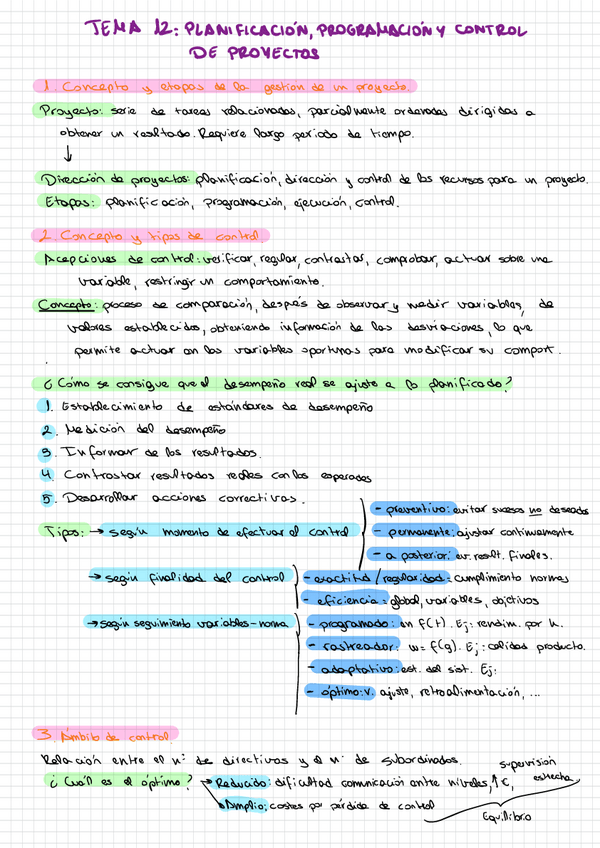 TEMA 12: PLANIFICACIÓN, PROGRAMACIÓN Y CONTROL
DE PROYECTOS
1. Concepto y etapas de la gestión de un proyecto.
Proyecto: serie de tareas relacionadas, parcialmente ordenadas dirigidas a
obtener un resultado. Requiere largo periodo de tiempo.
↓
Dirección de proyectos: planificación, dirección y control de los recursos para un proyecto.
Etapas: planificación, programación, ejecución, control.
2. Concepto y tipos de control.
Acepciones de control: verificar, regular, contrastar, comprobar, actuar sobre una
variable, restringir un comportamiento.
Concepto: proceso de comparación, después de observar y medir variables, de
valores establecidos, obteniendo información de las desviaciones, lo que
permite actuar en las variables oportunas para modificar su comport.
¿Cómo se consigue que el desempeño real se ajuste a lo planificado?
1. Establecimiento de estándares de desempeño
2. Medición del desempeño
3. Informar de los resultados.
4. Contrastar resultados reales con los esperados
5. Desarrollar acciones correctivas.
Tipos: → según momento de efectuar el control
- preventivo: evitar sucesos no deseados
- permanente: ajustar continuamente
- a posteriori: ev. result. finales.
→ según finalidad del control
- exactitud / regularidad: cumplimiento normas
- eficiencia: global, variables, objetivos
→ según seguimiento variables-norma
- programado: en f(t). Ej: rendim. por h.
- rastreador: w = f(g). Ej: calidad producto.
- adaptativo: est. del sist. Ej:
- óptimo: v. ajuste, retroalimentación, ...
3. Ámbito de control
Relación entre el nº de directivos y el nº de subordinados.
¿Cuál es el óptimo? → Reducido: dificultad comunicación entre niveles, ↑€, supervisión estrecha
→ Amplio: costes por pérdida de control
Equilibrio